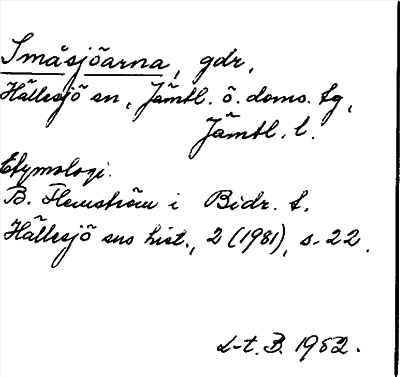 Småsjöarna, gdr,
Hällesjö sn, Jämtl. ö. doms. tg,
Jämtl. l.
Etymologi.
B. Flemström i Bidr. t.
Hällesjö sns hist., 2 (1981), s. 22.
L-t. B. 1982.